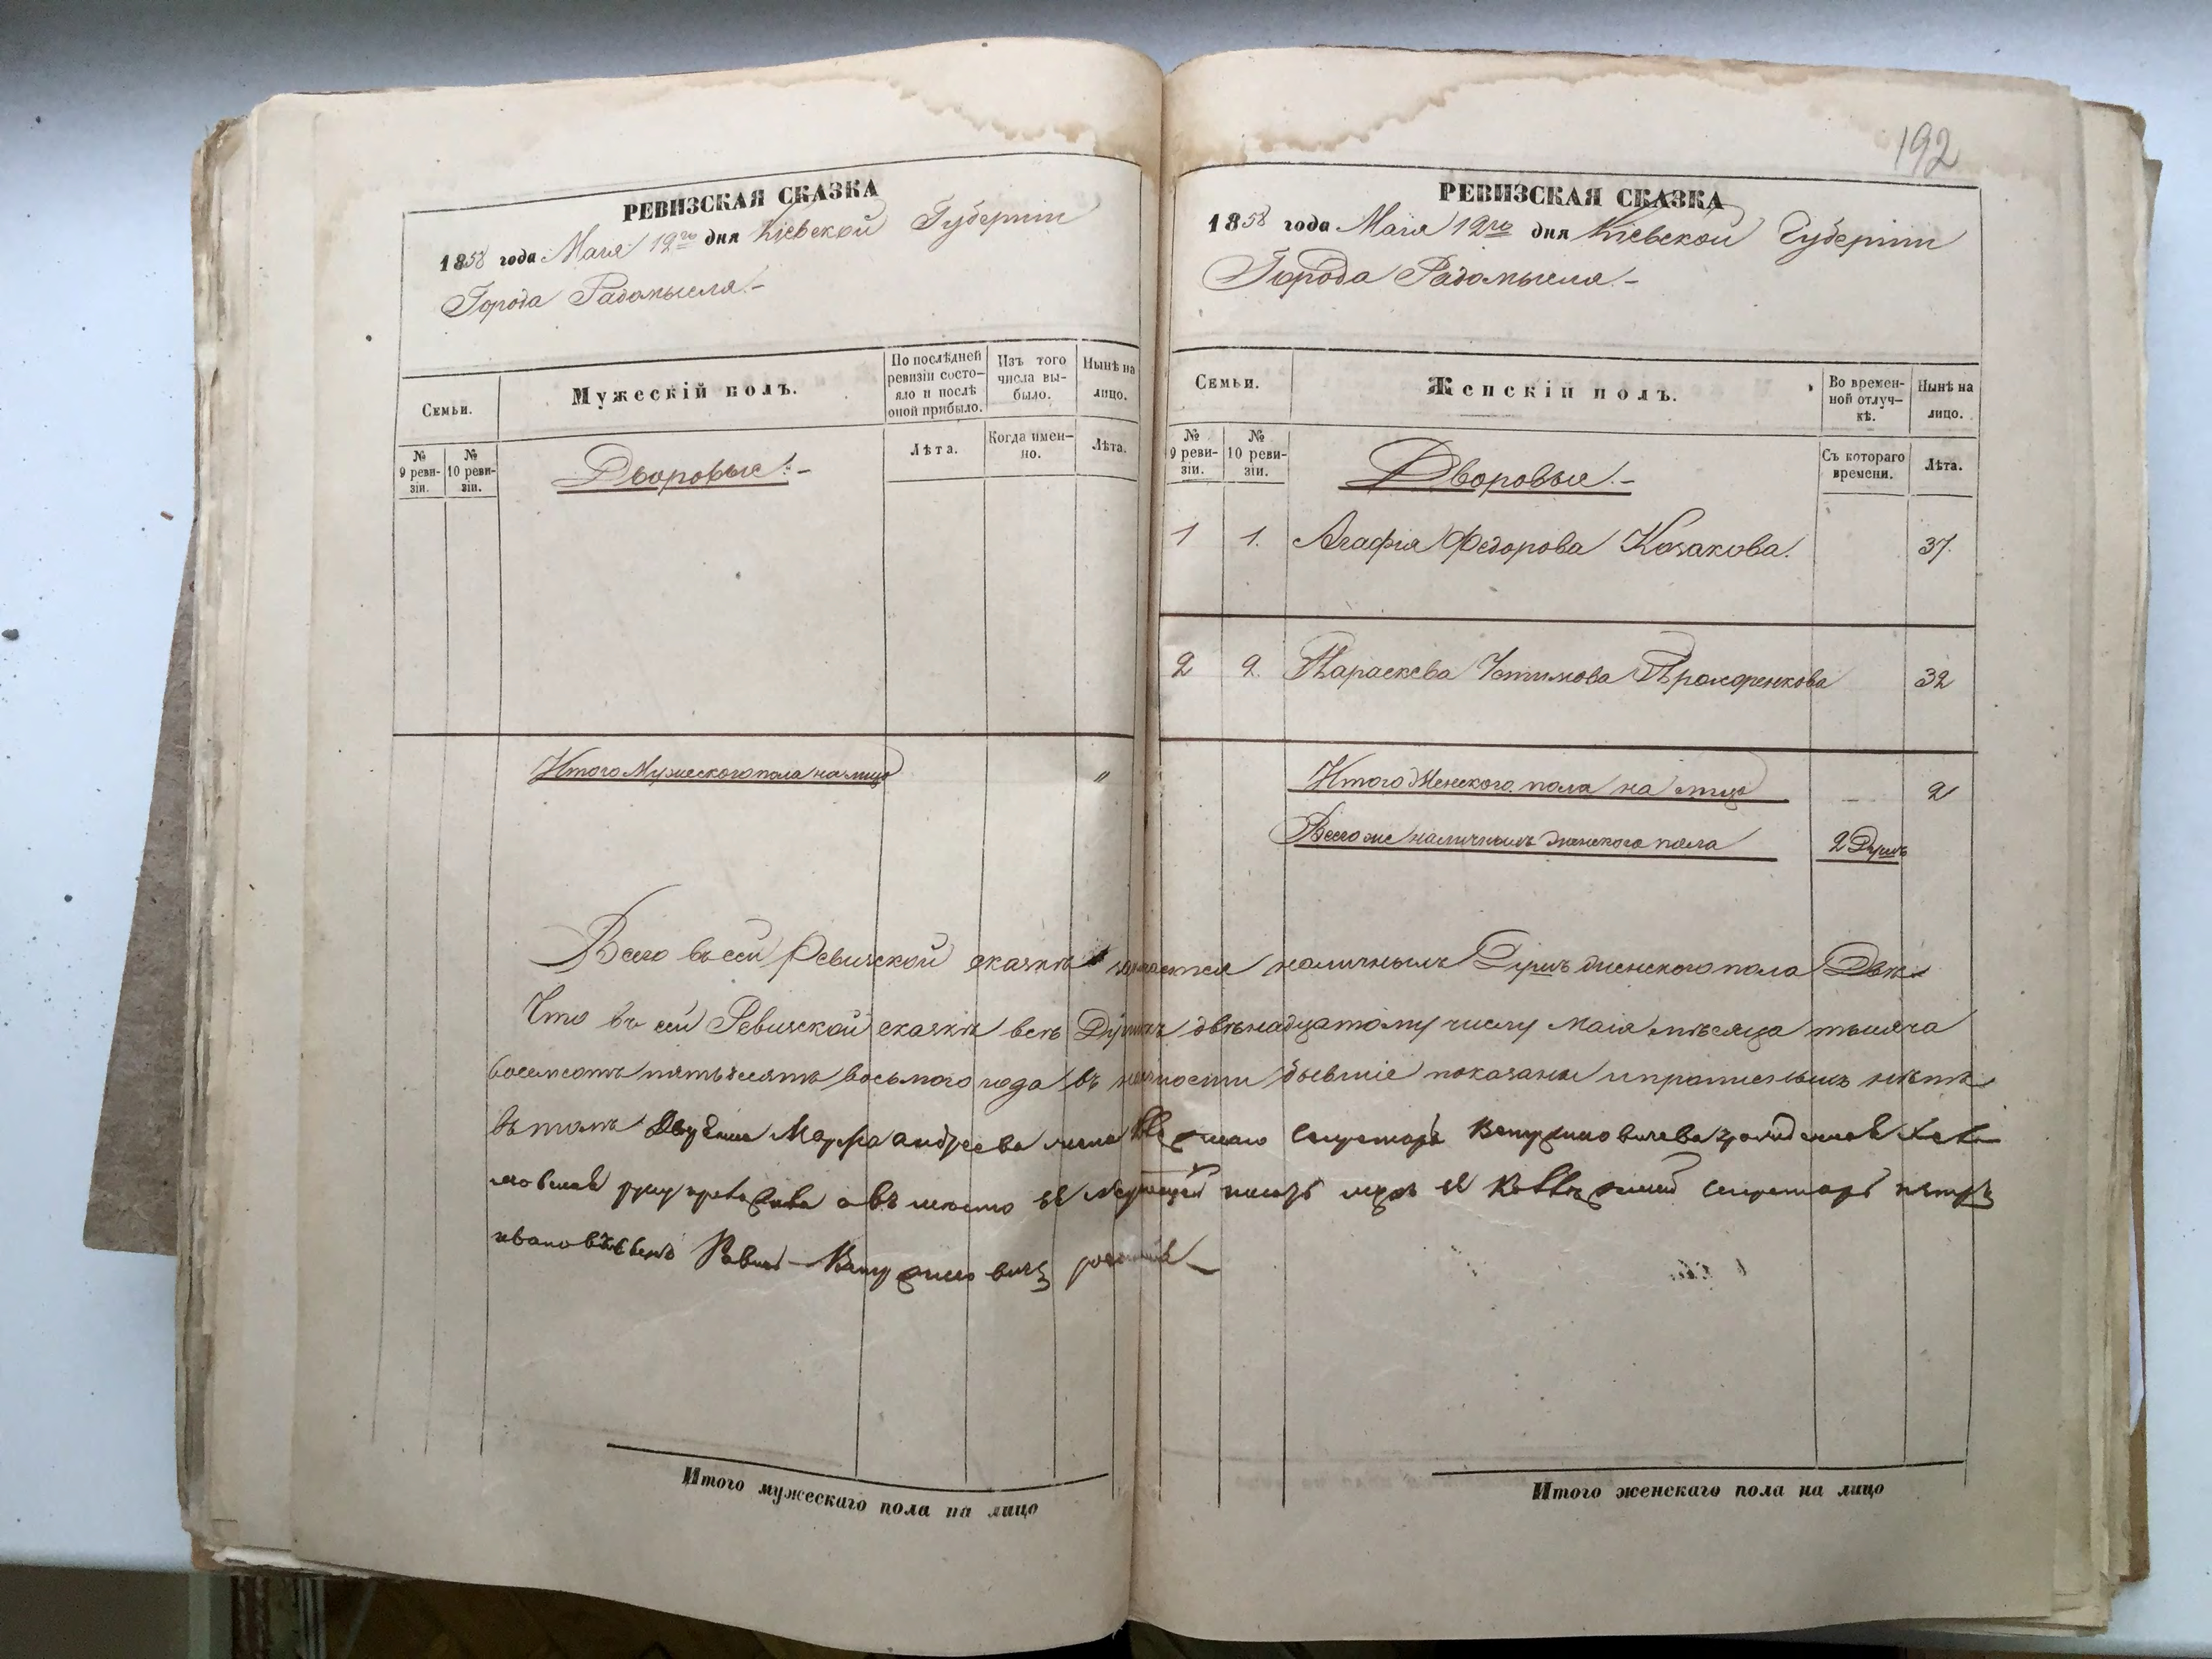 РЕВИЗСКАЯ СКАЗКА
1858 года Мая 12го дня Кіевской Губерніи
Города Радомысля.-
Семьи.
Мужескій полъ.
По послѣдней ревизіи состо-
яло и послѣ
оной прибыло.
Изъ того
числа вы-
было.
Нынѣ на
лицо.
№
9 реви-
зіи.
№
10 реви-
зіи.
Дворовые.-
Лѣта.
Когда имен-
но.
Лѣта.
Итого Мужескаго пола налицо
"
Итого мужескаго пола на лицо
192
РЕВИЗСКАЯ СКАЗКА
1858 года Мая 12го дня Кіевской Губерніи
Города Радомысля.-
Семьи.
Женскій полъ.
Во времен-
ной отлуч-
кѣ.
Нынѣ на
лицо.
№
9 реви-
зіи.
№
10 реви-
зіи.
Дворовые.-
Съ котораго
времени.
Лѣта.
1 1. Агафія Федорова Козакова. 37.
2 2. Параскева Устимова Прохоренкова 32
Итого Женского пола на лицо 2
Всего же наличныхъ женского пола 2 Душъ
Всего въ сей Ревизской сказкѣ наличныхъ Душъ женского пола Двѣ
Что въ сей Ревизской сказкѣ всѣ Души къ двѣнадцатому числу маія мѣсяца тысяча
восемсотъ пятьдесятъ восьмого года въ бывшіе показаны и прописныхъ нѣтъ
въ томъ Марфа андреева жена секретаря
руку а вмѣсто ея мужъ ея секретарь петръ
ивановъ сынъ
Итого женскаго пола на лицо